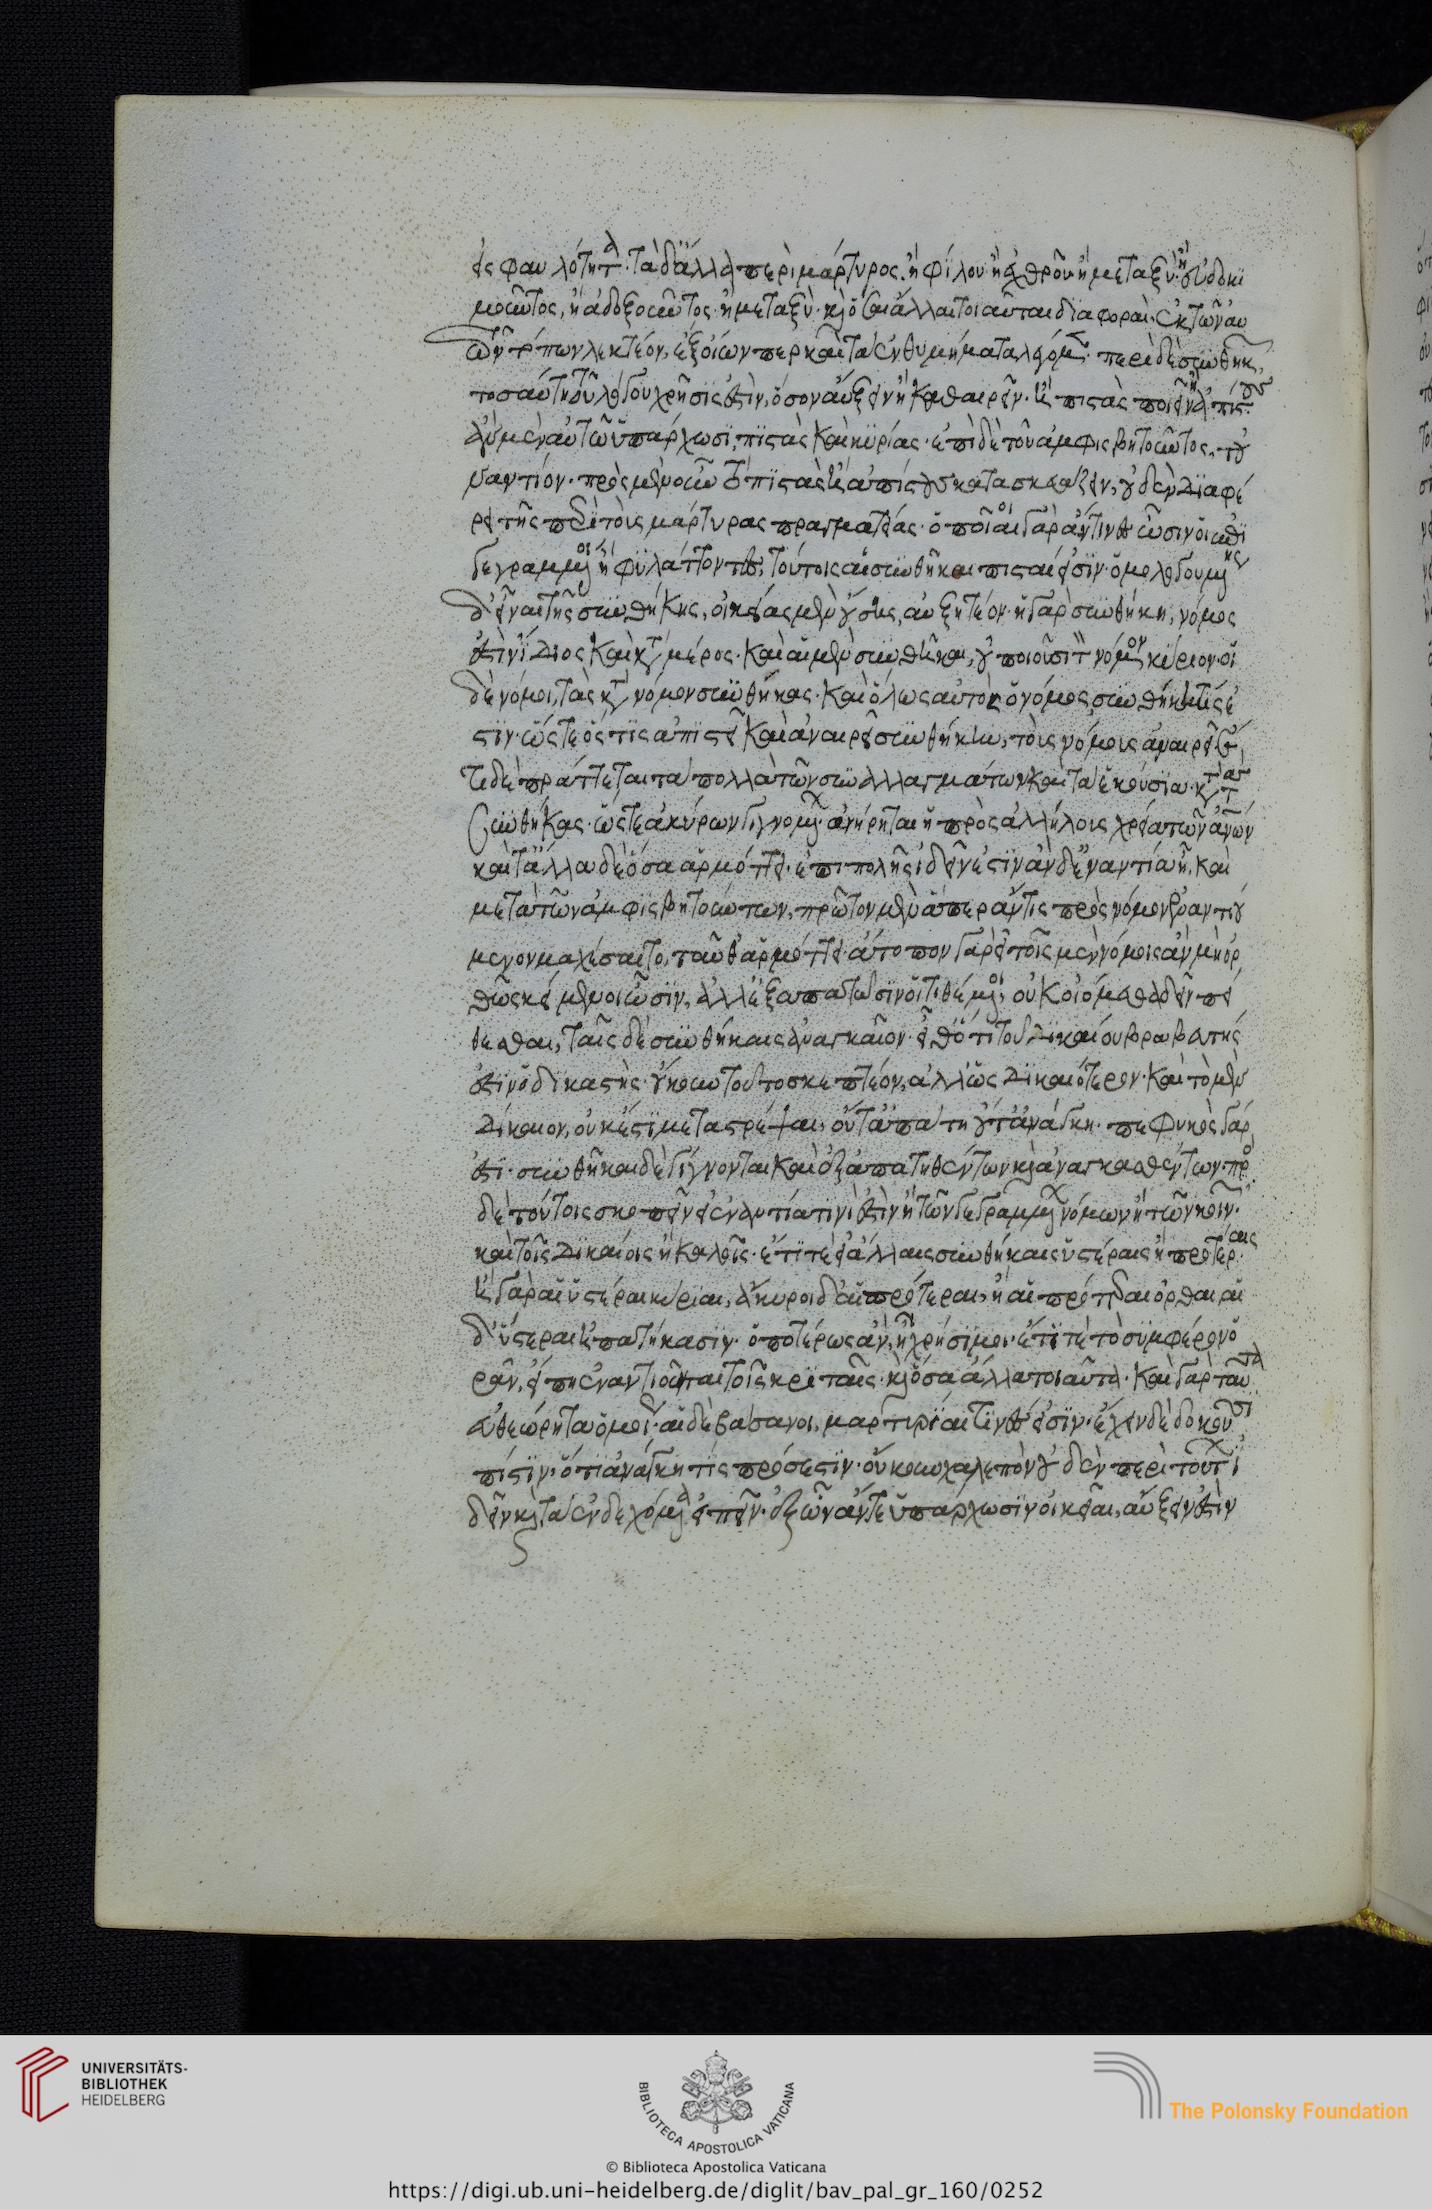 εἰς φαυλότητα· τὰ δ' ἄλλα περὶ μάρτυρος ἢ φίλου ἢ ἐχθροῦ ἢ μεταξύ· ἢ εὐδοκι
μοῦντος, ἢ ἀδοξοῦντος ἢ μεταξὺ· καὶ ὅσαι ἄλλαι τοιαῦται διαφοραὶ· ἐκ τῶν αὐ
τῶν τόπων λεκτέον, ἐξ οἵων περ καὶ τὰ ἐνθυμήματα λέγομεν· περὶ δὲ συνθηκῶν,
τοσαύτη τοῦ λόγου χρῆσίς ἐστιν, ὅσον αὔξειν ἢ καθαιρεῖν· ἢ πιστὰς ποιεῖν ἢ ἀπίστους·
ἐὰν μὲν αὐτῷ ὑπάρχωσι, πιστὰς καὶ κυρίας· ἐπὶ δὲ τοῦ ἀμφισβητοῦντος, τοὐ
ναντίον· πρὸς μὲν οὖν τὸ πιστὰς ἢ ἀπίστους κατασκευάζειν, οὐδὲν διαφέ
ρει τῆς περὶ τοὺς μάρτυρας πραγματείας· ὁποῖοι γὰρ ἄν τινες ὦσιν οἱ ἐπι
γεγραμμένοι ἢ φυλάττοντες, τούτοις αἱ συνθῆκαι πισταί εἰσιν· ὁμολογουμένης
δ' εἶναι τῆς συνθήκης, οἰκείας μὲν οὔσης, αὐξητέον· ἡ γὰρ συνθήκη, νόμος
ἐστὶν ἴδιος καὶ κατὰ μέρος· καὶ αἱ μὲν συνθῆκαι, οὐ ποιοῦσι τὸν νόμον κύριον· οἱ
δὲ νόμοι, τὰς κατὰ νόμον συνθήκας· καὶ ὅλως αὐτὸς ὁ νόμος συνθήκη τίς ἐ
στιν· ὥστε ὅστις ἀπιστεῖ καὶ ἀναιρεῖ συνθήκην, τοὺς νόμους ἀναιρεῖ· ἔτι
δὲ πράττεται τὰ πολλὰ τῶν συναλλαγμάτων καὶ τὰ ἑκούσια κατὰ τὰς
συνθήκας· ὥστε ἀκύρων γιγνομένων ἀνῄρηται ἡ πρὸς ἀλλήλους χρεία τῶν ἀνθρώπων
καὶ τἄλλα δὲ ὅσα ἁρμόττει· ἐπιπολῆς ἰδεῖν ἐστιν ἂν δ' ἐναντία ᾖ, καὶ
μετὰ τῶν ἀμφισβητούντων, πρῶτον μὲν ἅπερ ἄν τις πρὸς νόμον ἐναντιού
μενον μαχέσαιτο, ταῦθ' ἁρμόττει· ἄτοπον γὰρ εἰ τοῖς μὲν νόμοις ἂν μὴ ὀρ
θῶς κείμενοι ὦσιν, ἀλλ' ἐξαπατῶσιν οἱ τιθέμενοι, οὐκ οἰόμεθα δεῖν πεί
θεσθαι, ταῖς δὲ συνθήκαις ἀναγκαῖον· εἶθ' ὅτι τοῦ δικαίου βραβευτής
ἐστιν ὁ δικαστὴς· οὔκουν τοῦτο σκεπτέον, ἀλλ' ὡς δικαιότερον· καὶ τὸ μὲν
δίκαιον, οὐκ ἔστι μεταστρέψαι, οὔτ' ἀπάτῃ οὔτ' ἀνάγκῃ· πεφυκὸς γάρ
ἐστι· συνθῆκαι δὲ γίγνονται καὶ ἐξαπατηθέντων καὶ ἀναγκασθέντων· πρὸς
δὲ τούτοις σκοπεῖν εἰ ἐναντία τινὶ ἐστὶν ἢ τῶν γεγραμμένων νόμων ἢ τῶν κοινῶν·
καὶ τοῖς δικαίοις ἢ καλοῖς· ἔτι τε εἰ ἄλλαις συνθήκαις ὑστέραις ἢ προτέραις·
ἢ γὰρ αἱ ὕστεραι κύριαι, ἄκυροι δ' αἱ πρότεραι, ἢ αἱ πρότεραι ὀρθαὶ αἱ
δ' ὕστεραι ἠπατήκασιν· ὁποτέρως ἂν, ᾖ χρήσιμοι· ἔτι τε τὸ συμφέρον ὁ
ρᾶν, εἴ πῃ ἐναντιοῦται τοῖς κριταῖς· καὶ ὅσα ἄλλα τοιαῦτα· καὶ γὰρ ταῦτα
εὐθεώρητα ὁμοίως· αἱ δὲ βάσανοι, μαρτυρίαι τινές εἰσιν· ἔχειν δὲ δοκοῦσι
πίστιν· ὅτι ἀνάγκη τις πρόσεστιν· οὔκουν χαλεπὸν οὐδὲν περὶ τούτων ἰ
δεῖν καὶ τὰ ἐνδεχόμενα εἰπεῖν· ἐξ ὧν ἄν τε ὑπάρχωσιν οἰκεῖαι, αὔξειν ἐστὶν
UNIVERSITÄTS-
BIBLIOTHEK
HEIDELBERG
BIBLIOTECA APOSTOLICA VATICANA
The Polonsky Foundation
© Biblioteca Apostolica Vaticana
https://digi.ub.uni-heidelberg.de/diglit/bav_pal_gr_160/0252